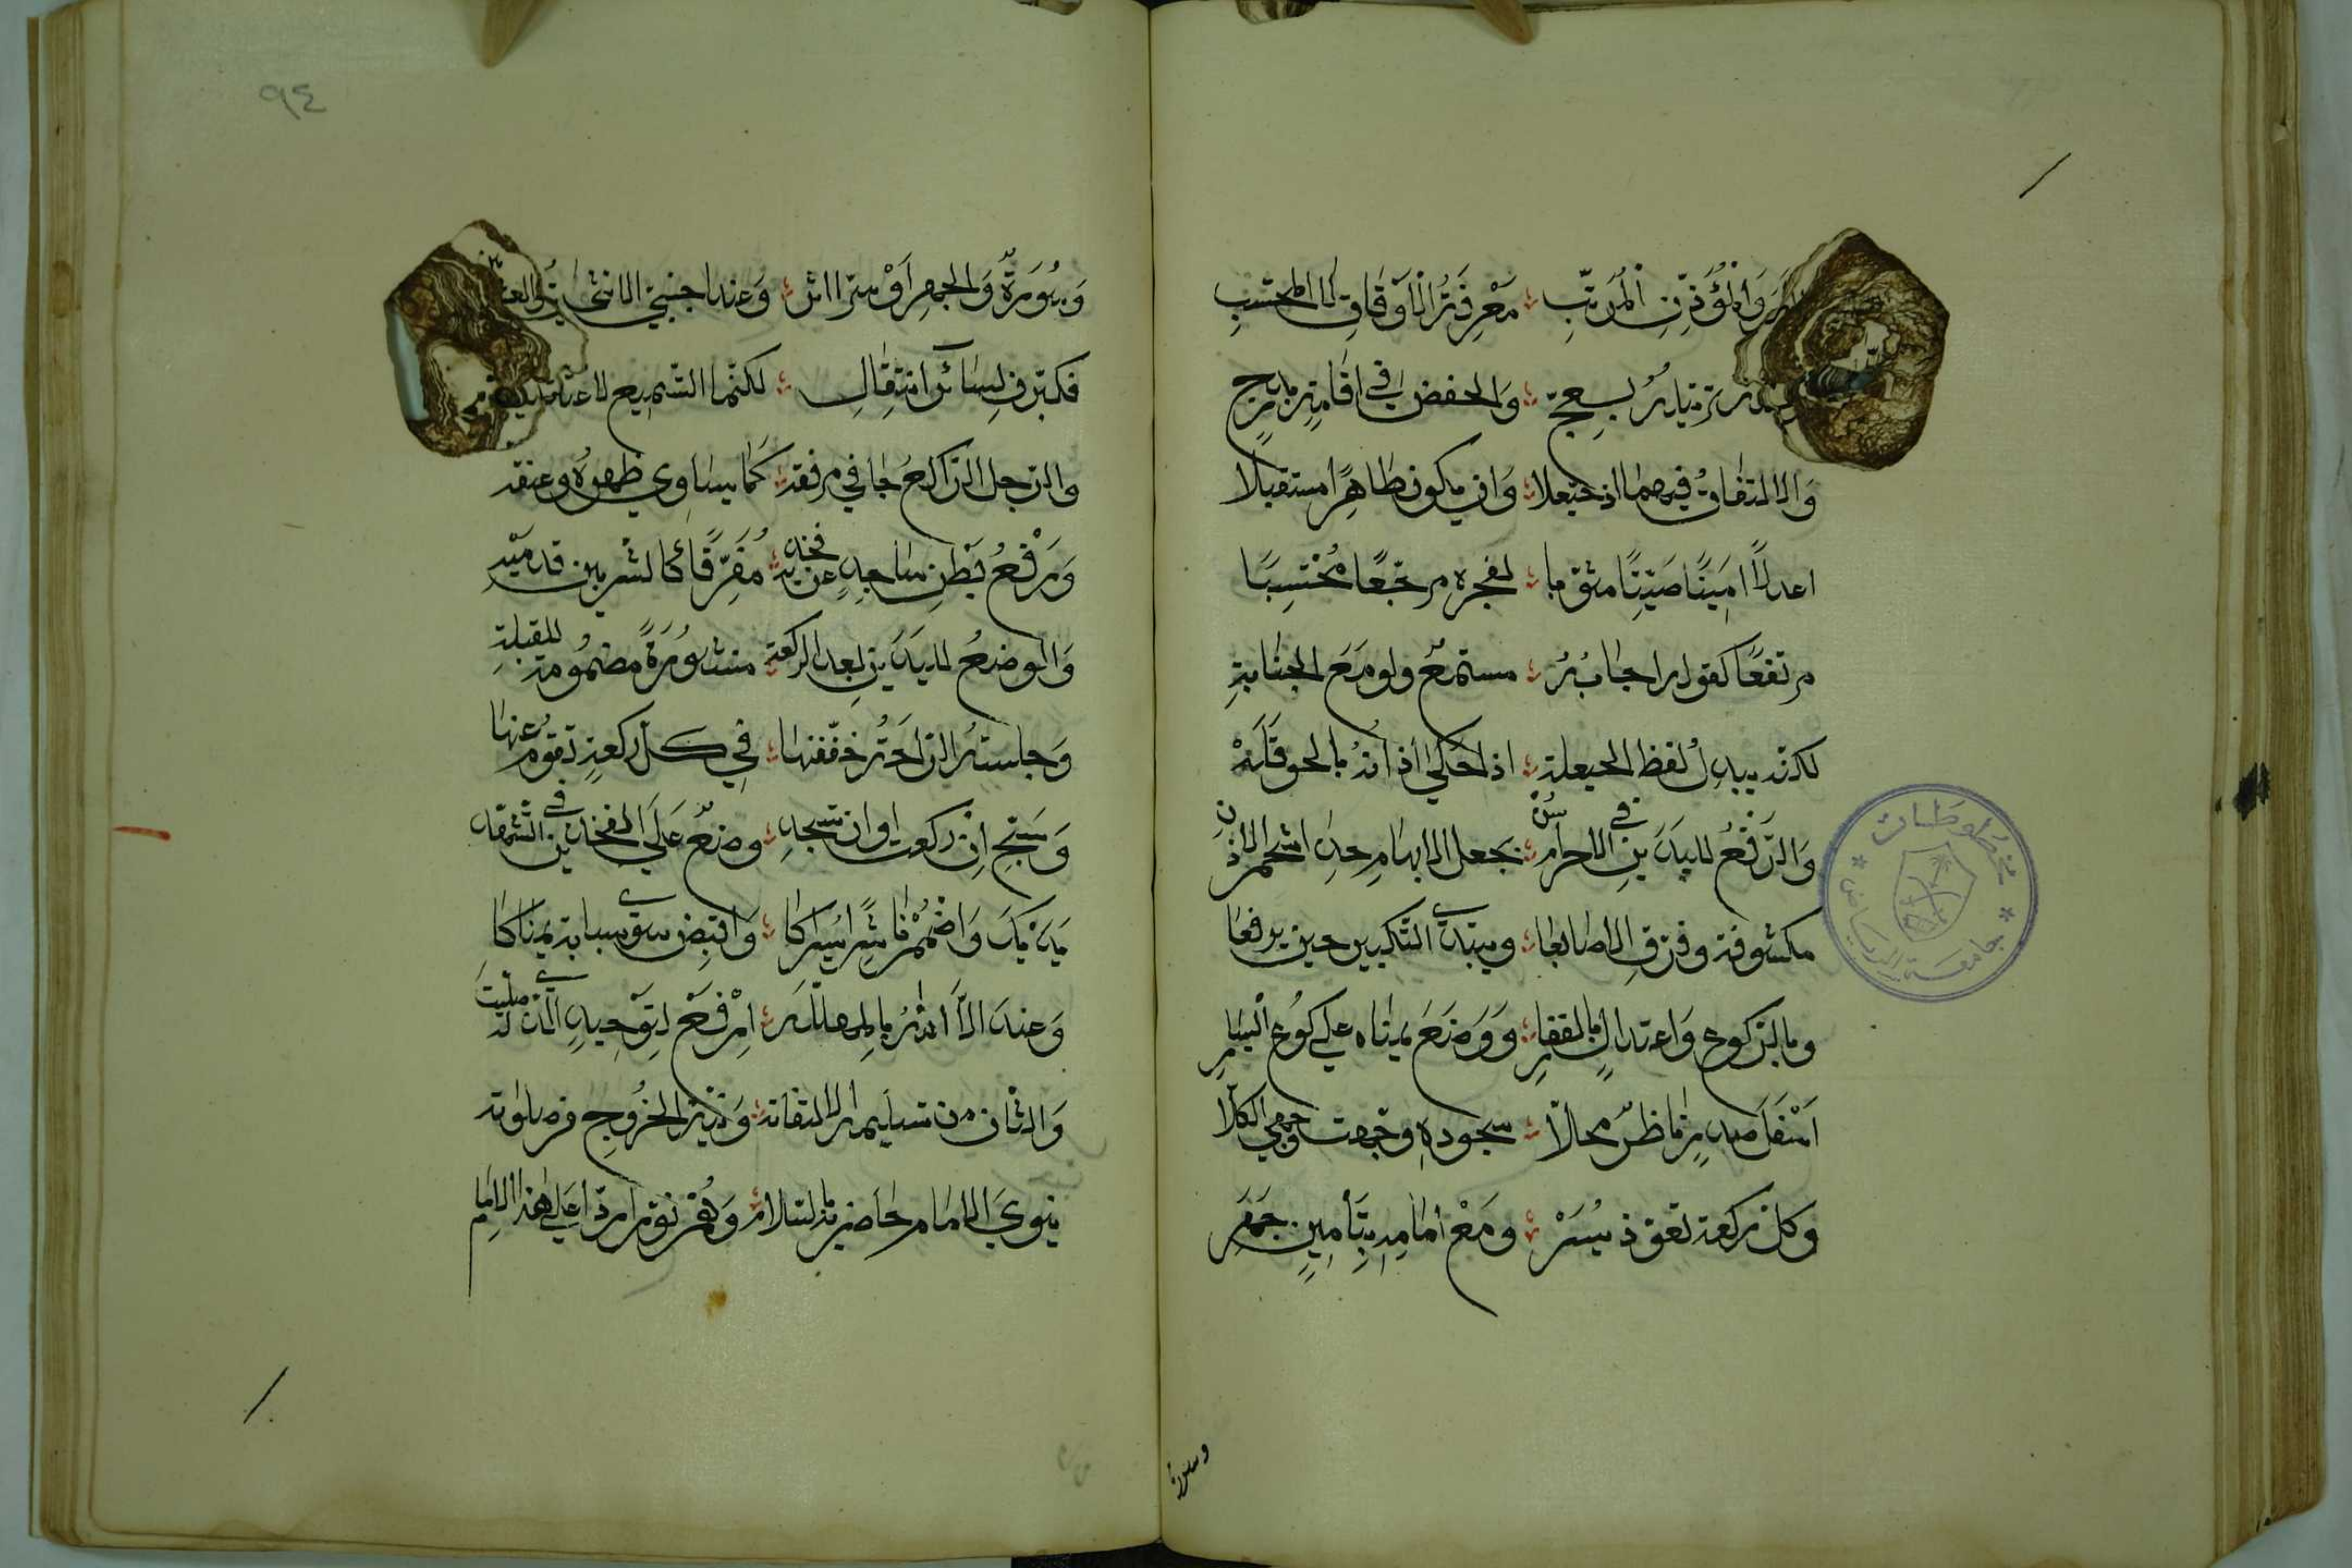 والمؤذن المرتب معرفة الاوقات لا المحتسب
والخفض في اقامة بدرج
والالتفات فيهما اذ حيعلا وان يكون طاهرا مستقبلا
اعدلا امينا صيتا مثوبا لفجره مرجعا محتسبا
مرتفعا كقوله اجابه مستمع ولو مع الجنابة
لكنه يبدل لفظ الحيعلة اذا حكي اذانه بالحوقلة
والرفع لليدين في الاحرام سن بجعل الابهام حذا شحم الاذن
مكشوفة وفرق الاصابعا ويبتدي التكبير حين يرفعا
وبالركوع واعتدال بالفقار ووضع يمناه علي كوع اليسار
اسفل صدر ناظرا محالا سجوده وجهت وجهي الكلا
وكل ركعة تعوذ يسر ومع امامه بتأمين جهر
وسورة
٩٤
وسورة والجهر او سرا اثر وعند اجنبي الانثي
فكبرن لسائر انتقال لكنما التسميع
والرجل الراكع جافي مرفقه كما يساوي ظهره وعنقه
ورفع بطن ساجد عن فخذيه مفرقا كالشبر بين قدميه
والوضع لليدين بعد الركعة منشورة مضمومة للقبلة
وجلسة الراحة خففنها في كل ركعة تقوم عنها
وسبح ان ركعت او ان تسجد وضع علي الفخذين في التشهد
يديك واضمم ناشرا يسراكا واقبض سوي سبابة يمناكا
وعند الا الله بالمهللة ارفع لتوحيد الذي صليت له
والثان من تسليم الالتفاته ونية الخروج من صلواته
ينوي الامام حاضريه بالسلام وهم نووا ردا علي هذا الامام
مخطوطات
جامعة الرياض